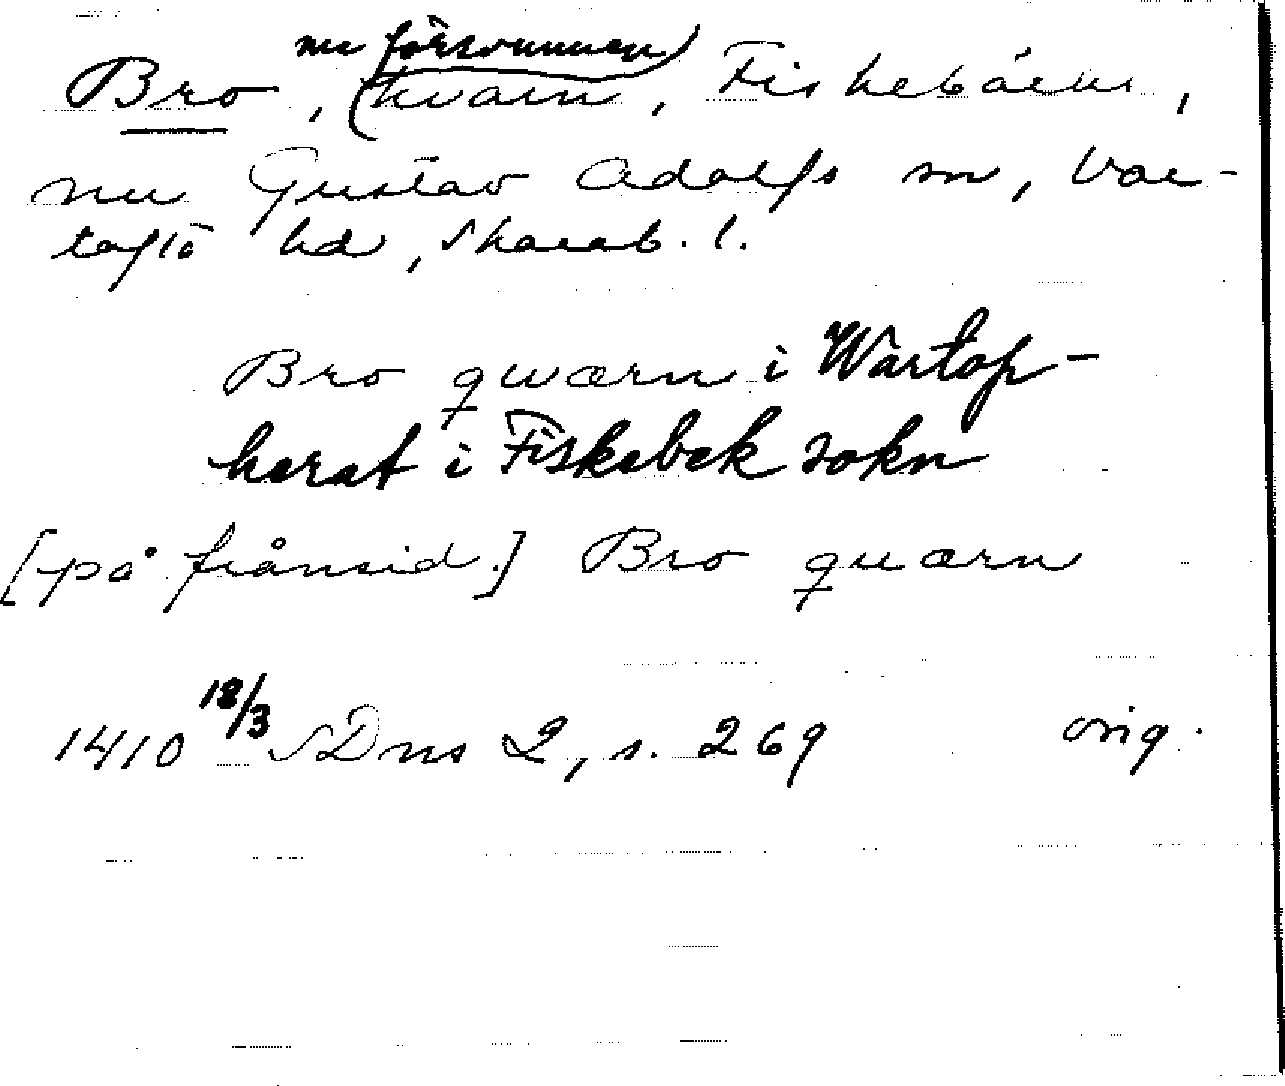 nu försvunnen)
Bro, (kvarn, Fiskebäcks,
nu Gustav Adolfs sn, Var-
tofta hd, Skarab. l.
Bro qwærn i Wartop-
herat i Fiskebek sokn
[på frånsid.] Bro quærn
1410 18/3 SDns 2, s. 269 orig.